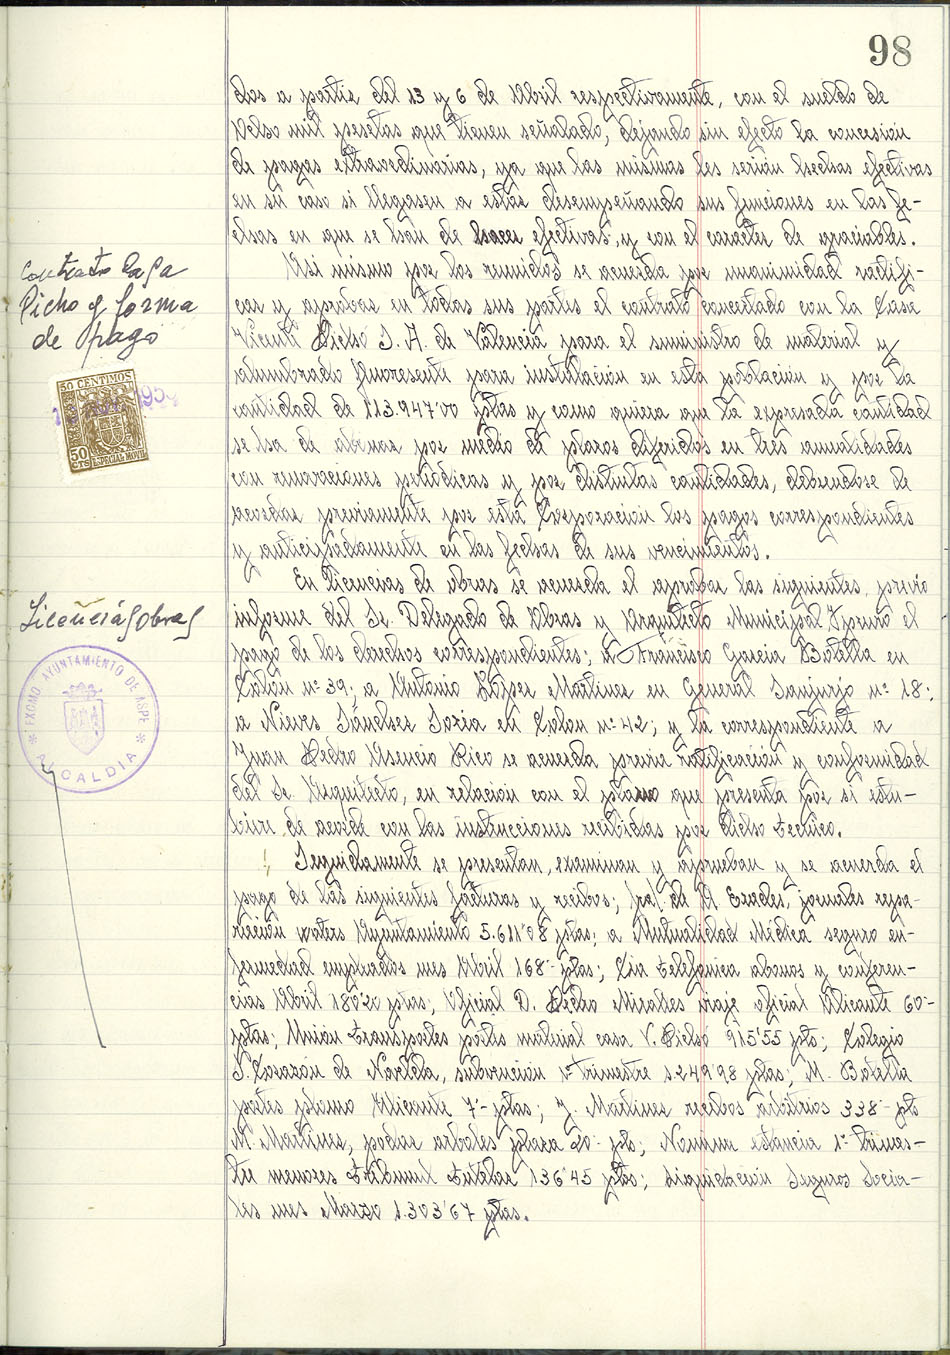 98
dos a partir del 13 y 6 de Abril respectivamente, con el sueldo de
Ocho mil pesetas que tienen señalado, dejando sin efecto la concesión
de pagas extraordinarias, ya que las mismas les serián hechas efectivas
en su caso si llegasen a estar desempeñando sus funciones en las fe-
chas en que se han de hacer efectivas, y con el caracter de graciables.
Contrato Casa
Dicho y forma
de pago
50 CENTIMOS
50 CTS ESPECIAL MOVIL
Asi mismo por los reunidos se acuerda por unanimidad ratifi-
car y aprobar en todas sus partes el contrato concertado con la Casa
Vicente Dicho S. A. de Valencia para el suministro de material y
alumbrado fluoresente para instalación en esta población y por la
cantidad de 113.947'00 ptas y como quiera que la expresada cantidad
se ha de abonar por medio de plazos diferidos en tres anualidades
con renovaciones periódicas y por distintas cantidades, debiendose de
acordar previamente por esta Corporación los pagos correspondientes
y anticipadamente en las fechas de sus vencimientos.
Licencias Obras
EXCMO. AYUNTAMIENTO DE ASPE
* ALCALDIA *
En Licencias de obras se acuerda el aprobar las siguientes, previo
informe del Sr. Delegado de Obras y Arquitecto Municipal y previo el
pago de los derechos correspondientes; a Francisco Garcia Botella en
Colón nº 39; a Antonio López Martinez en General Sanjurjo nº 18;
a Nieves Sánchez Soria en Colon nº 42; y la correspondiente a
Juan Pedro Asencio Rico se acuerda previa ratificación y conformidad
del Sr. Arquitecto, en relación con el plano que presenta por si estu-
biere de acorde con las instrucciones recibidas por dicho tecnico.
Seguidamente se presentan, examinan y aprueban y se acuerda el
pago de las siguientes facturas y recibos; de A. Erades, jornales repa-
ración waters Ayuntamiento 5.611'08 ptas; a Mutualidad Médica seguro en-
fermedad empleados mes Abril 168'- ptas; Cia telefónica abonos y conferen-
cias Abril 180'20 ptas; Oficial D. Pedro Miralles viaje oficial Alicante 60'-
ptas; Unión transportes portes material casa V. Dicho 915'55 pts; Colegio
S. Corazón de Novelda, subvención 1º trimestre 1.249'98 ptas; M. Botella
portes plomo Alicante 7'- ptas; J. Martinez recibos arbitrios 338'- pts
M. Martinez, podar arboles plaza 20'- pts; Nomina estancia 1º trimes-
tre menores tribunal tutelar 136'45 ptas; Liquidación Seguros Socia-
les mes Marzo 1.303'67 ptas.